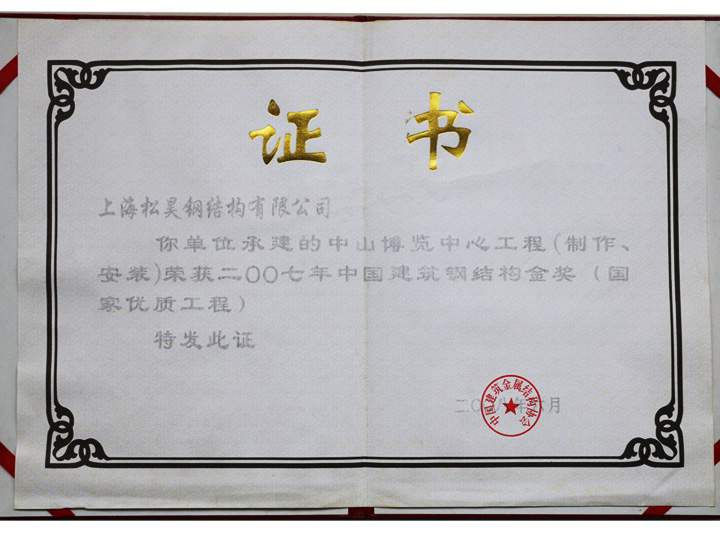 证书
上海松昊钢结构有限公司
你单位承建的中山博览中心工程(制作、
安装)荣获二〇〇七年中国建筑钢结构金奖(国
家优质工程)
特发此证
中国建筑金属结构协会
二〇 八年 月